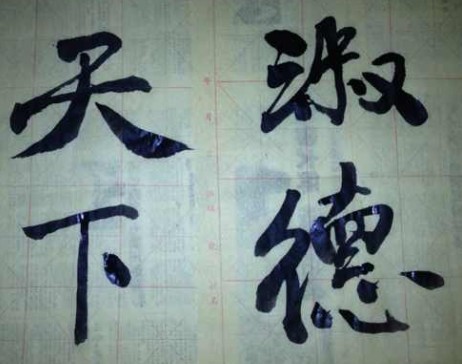 淑德
天下